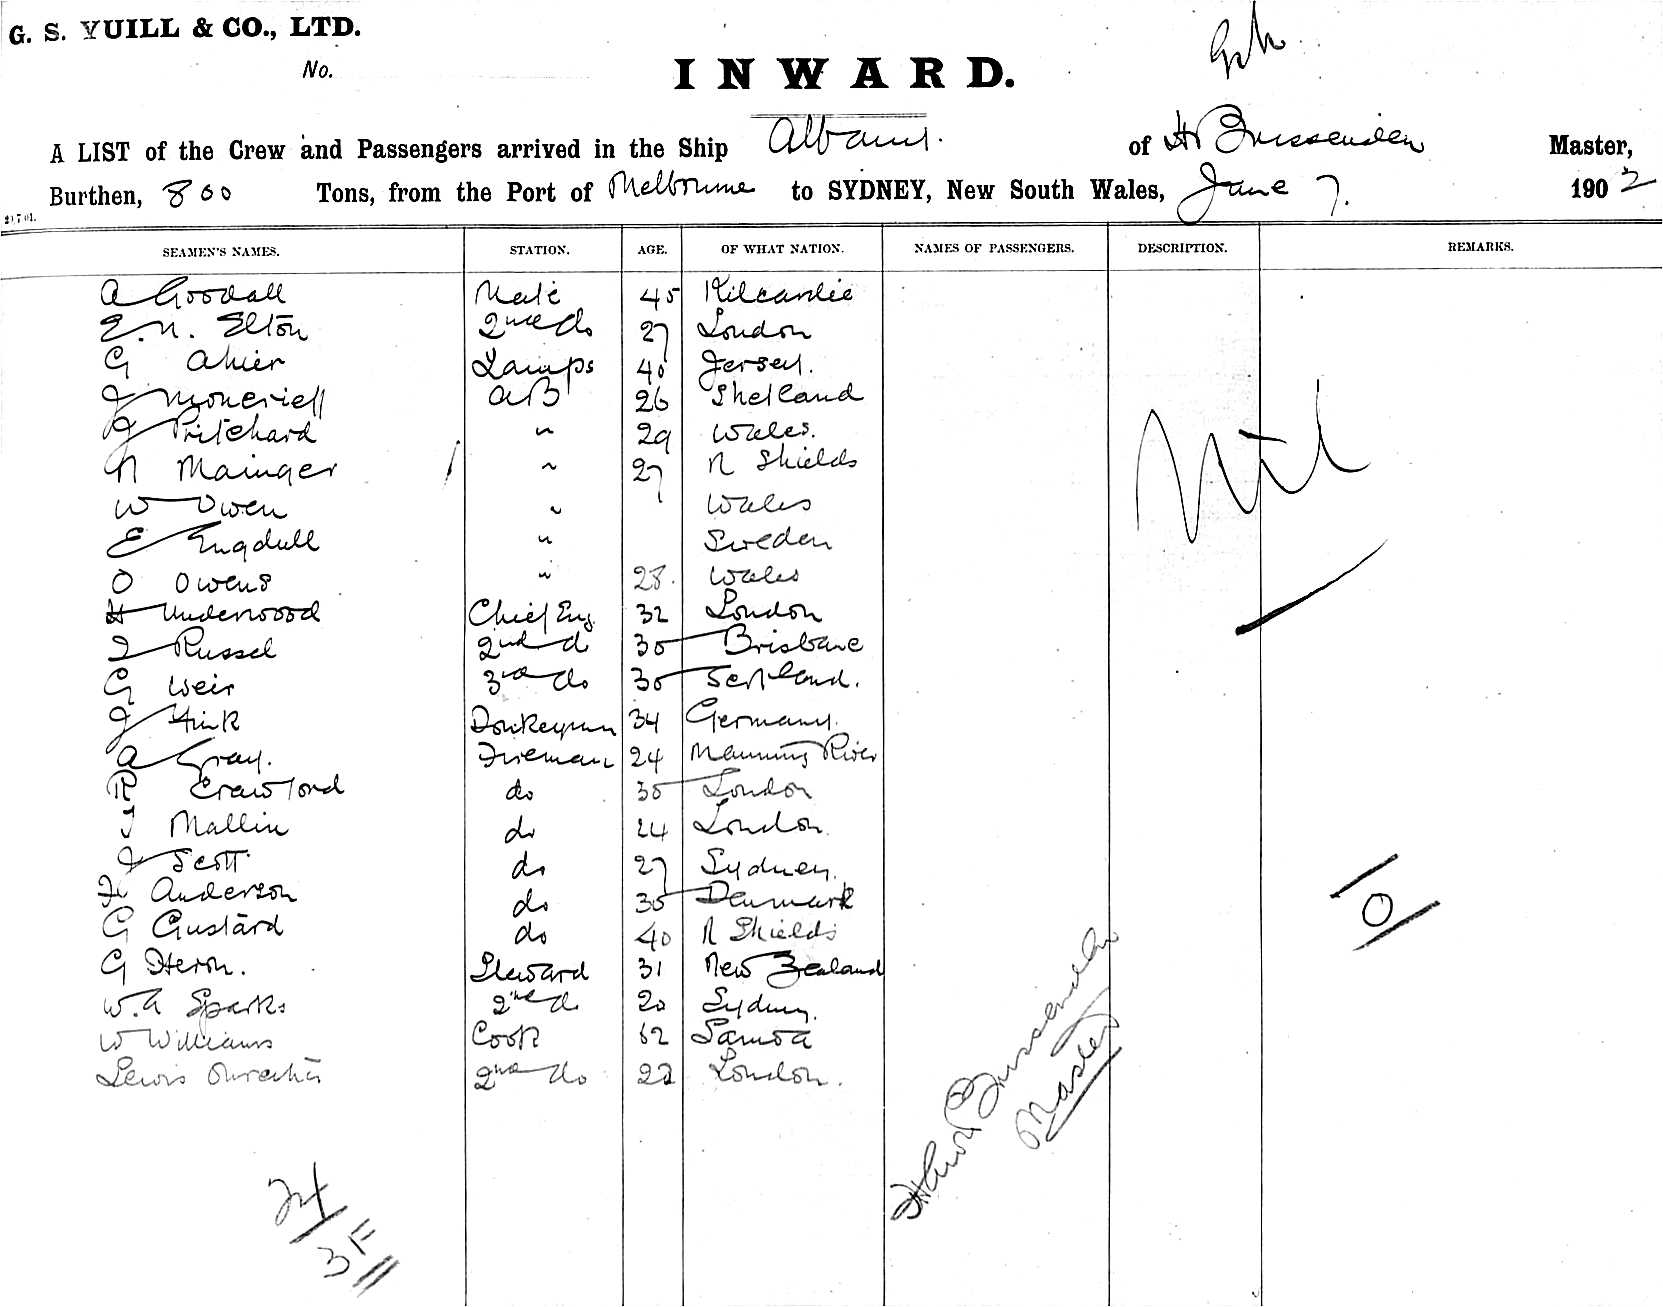 G. S. YUILL & CO., LTD.
No.
INWARD.
A LIST of the Crew and Passengers arrived in the Ship Albany. of H Brussenden Master,
Burthen, 800 Tons, from the Port of Melbourne to SYDNEY, New South Wales, June 7. 1902
21.7.01.
SEAMEN'S NAMES. STATION. AGE. OF WHAT NATION. NAMES OF PASSENGERS. DESCRIPTION. REMARKS.
A Goodall Mate 45
E. N. Elton 2nd do 27 London
G Ahier Lamps 40 Jersey.
J Moncrieff AB 26 Shetland
Pritchard " 29 Wales.
N Mainger " 27 N Shields
W Owen " Wales
E Engdull " Sweden
O Owens " 28. Wales
H Underwood Chief Eng. 32 London
J Russel 2nd do 35 Brisbane
G Weir 3rd do 35 Scotland.
J Fink Donkeyman 34 Germany.
A Gray. Fireman 24 Manning River
R Crawford do 35 London
J Mallin do 24 London.
J Scott. do 27 Sydney.
Anderson do 35 Denmark
G Gustard do 40 N Shields
G Heron. Steward 31 New Zealand
W. A Sparks 2nd do 20 Sydney.
W Williams Cook 62 Samoa
Lewis 2nd do 22 London.
Nil
O
Brussenden
Master
24
3F